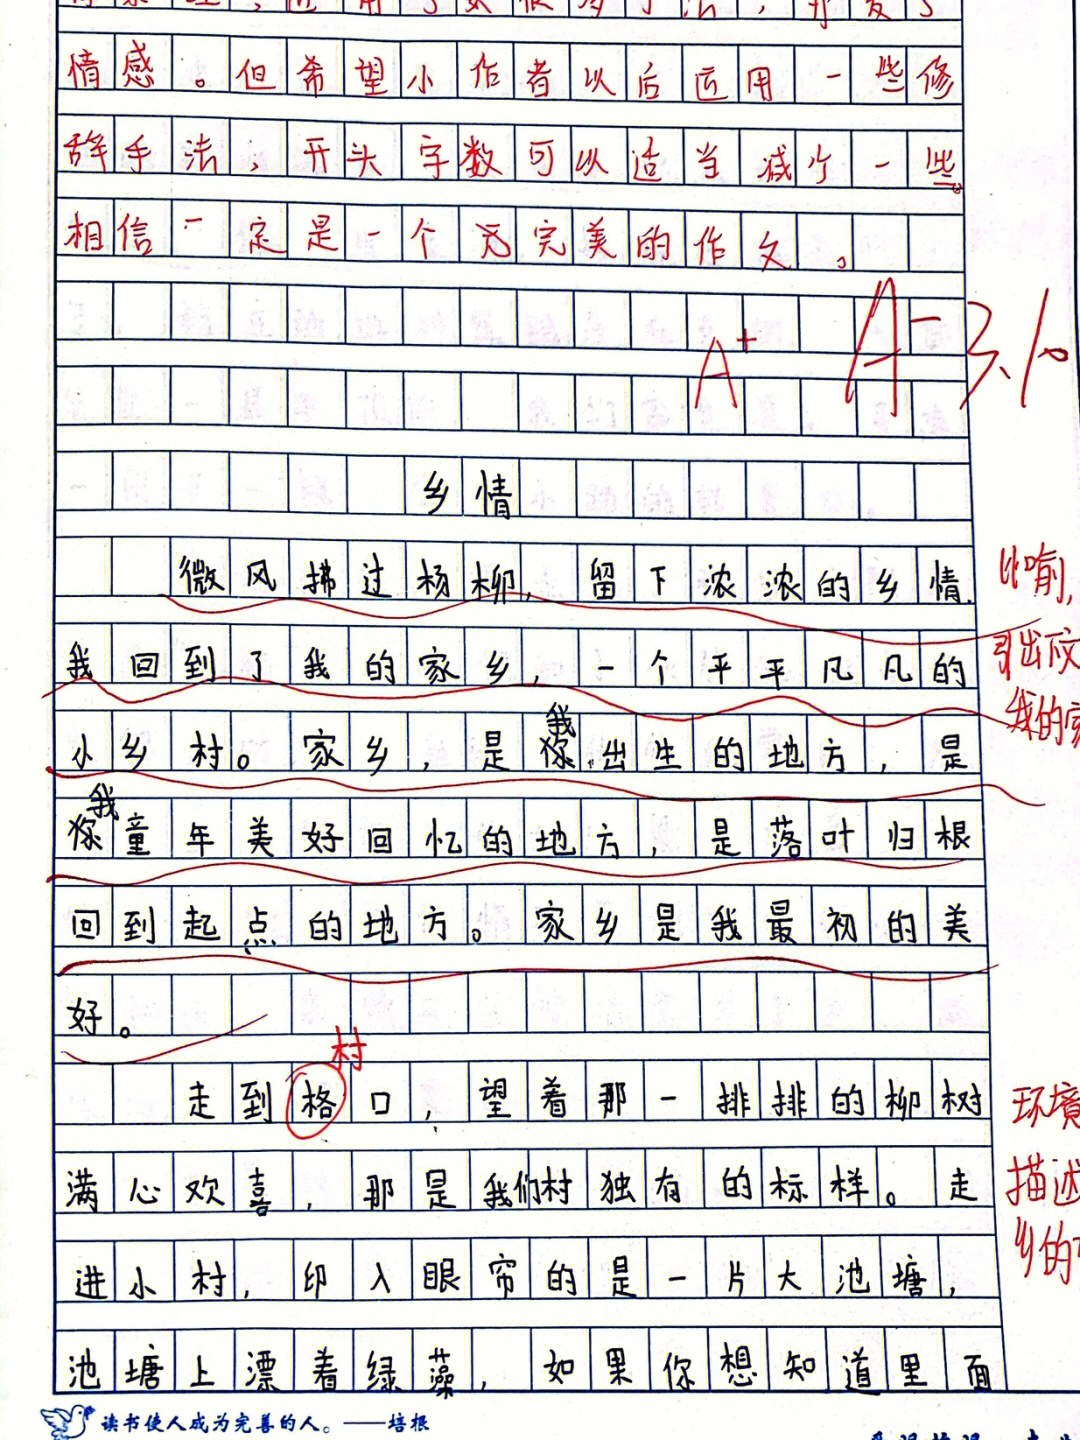 情感。但希望小作者以后运用一些修
辞手法,开头字数可以适当减少一些。
相信一定是一个完美的作文。
A+ A- 3.10
乡情
微风拂过杨柳,留下浓浓的乡情,
比喻,
我回到了我的家乡,一个平平凡凡的
引出
小乡村。家乡,是我出生的地方,是
我的家
我童年美好回忆的地方,是落叶归根
回到起点的地方。家乡是我最初的美
好。
村
走到格口,望着那一排排的柳树
环境
满心欢喜,那是我们村独有的标样。走
描述
进小村,印入眼帘的是一片大池塘,
乡的
池塘上漂着绿藻,如果你想知道里面
读书使人成为完善的人。——培根